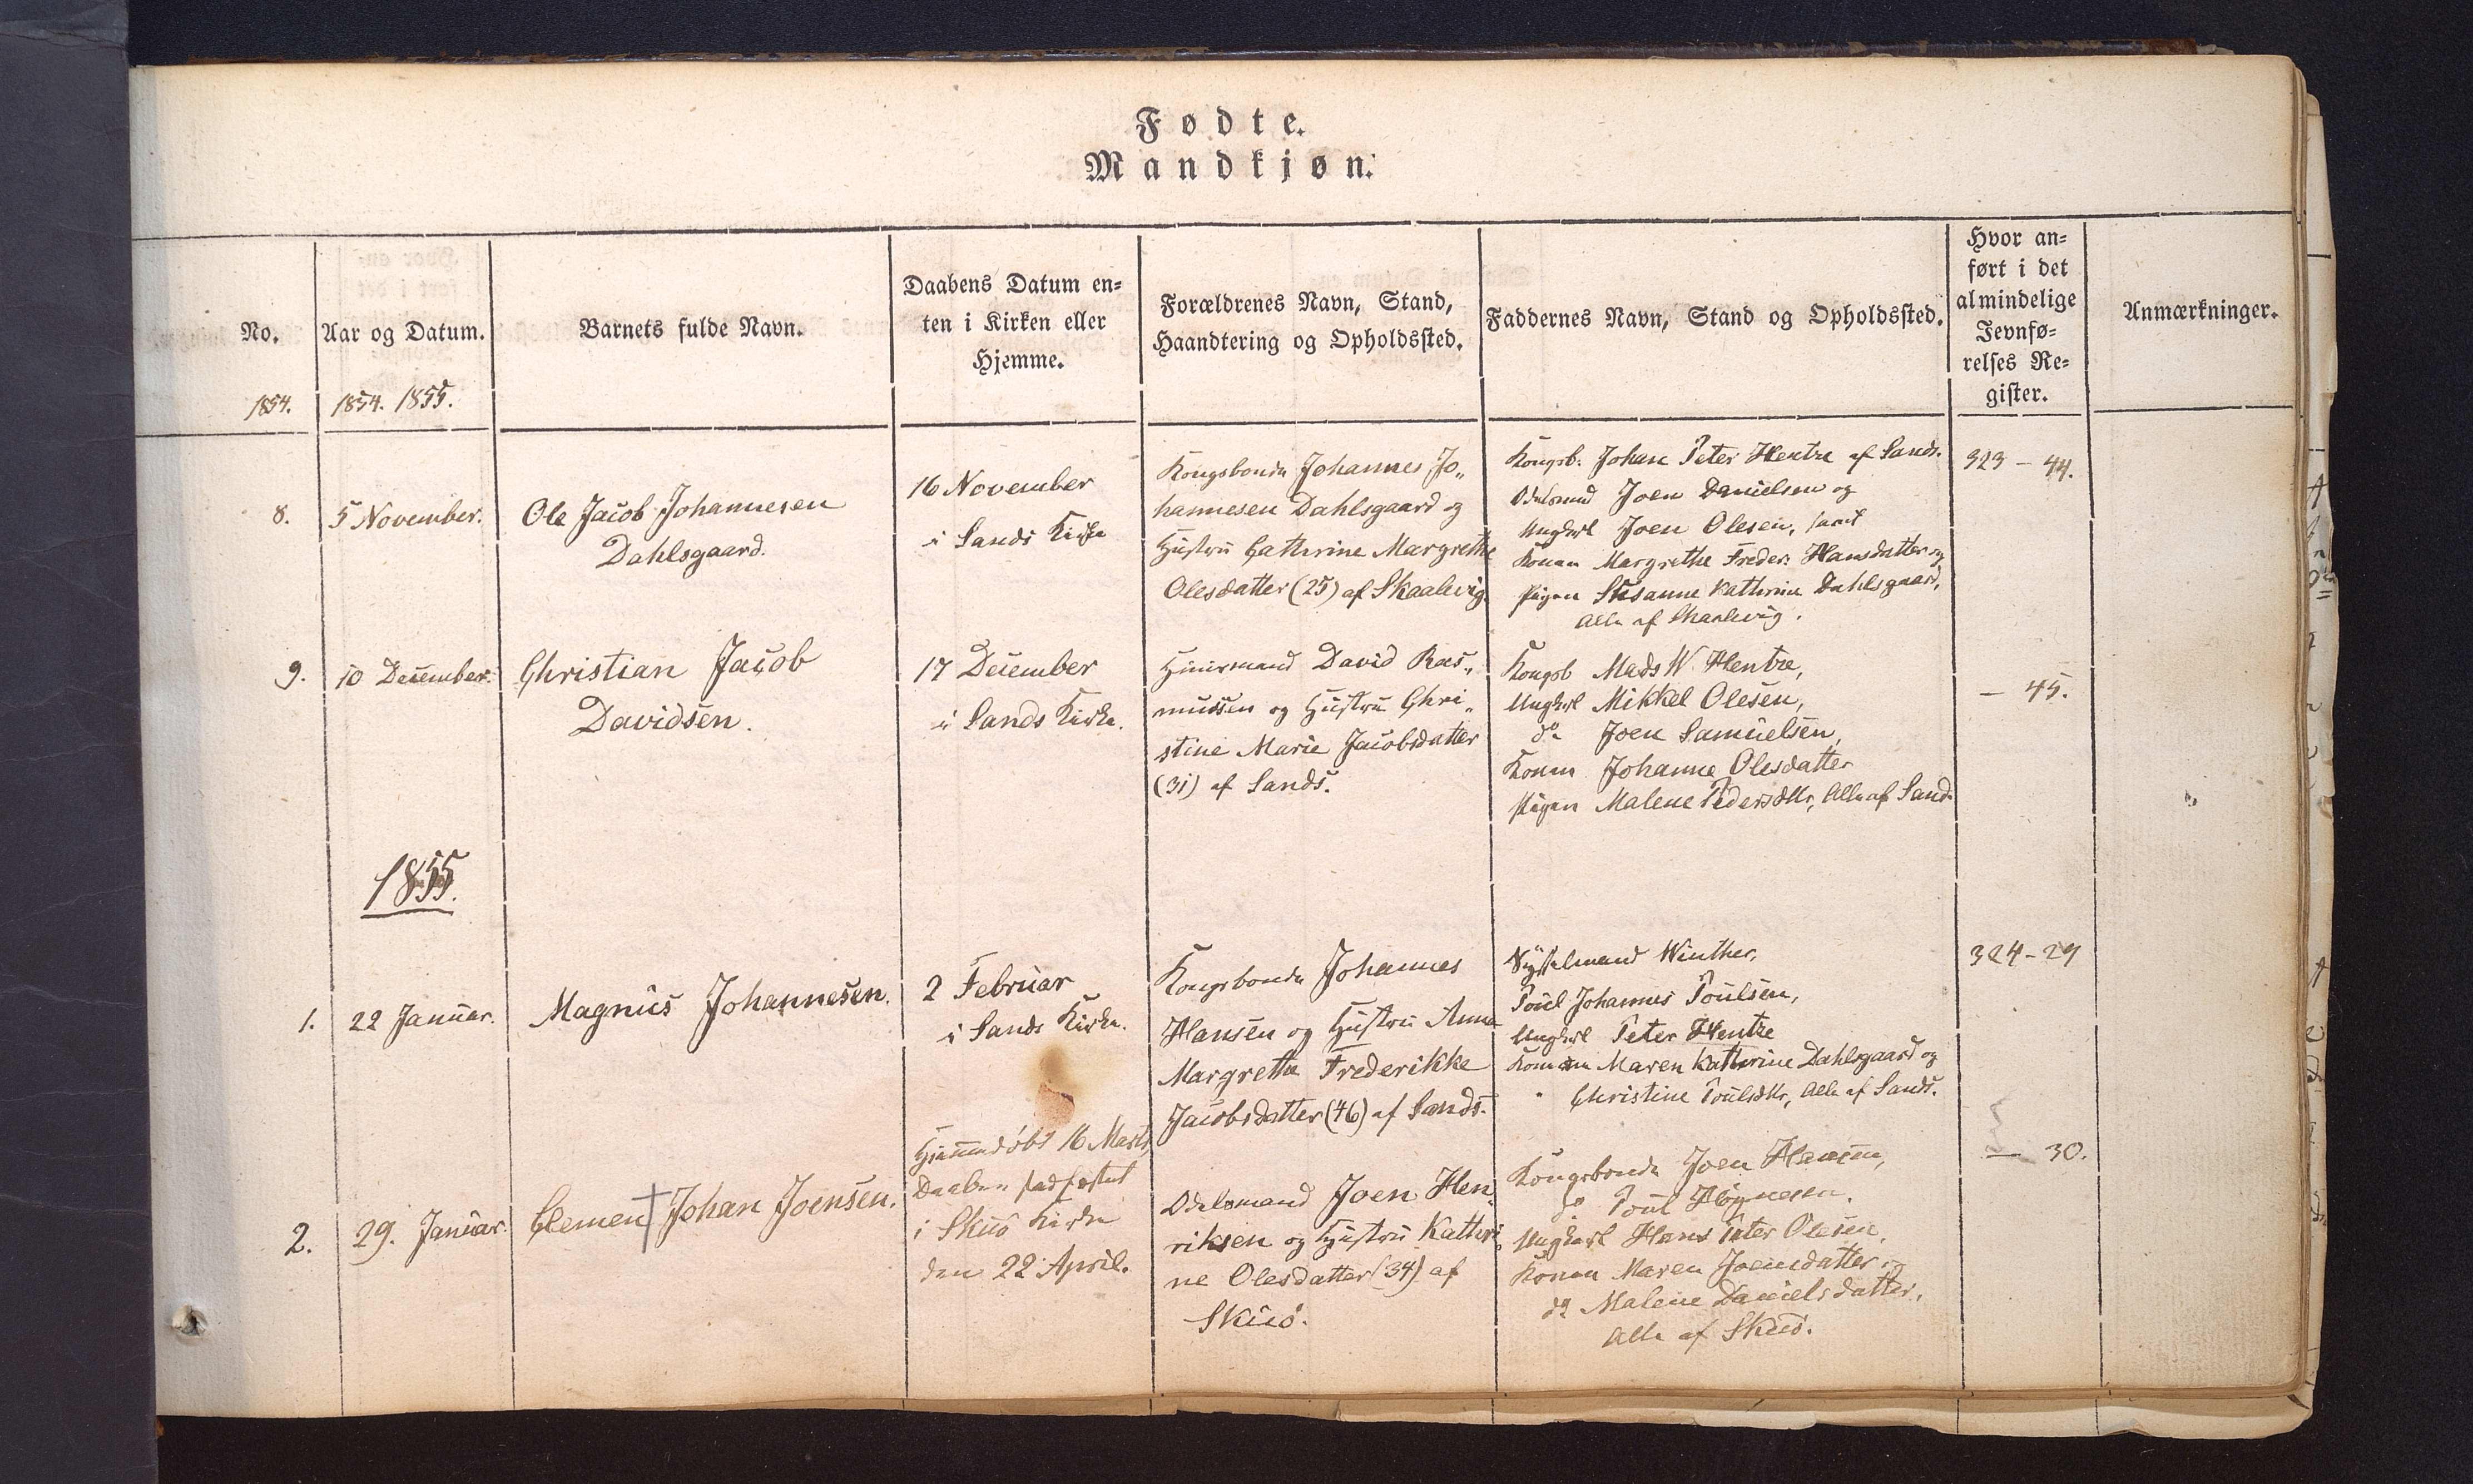 Fødte.
Mandkjøn.
No.
Aar og Datum.
Barnets fulde Navn.
Daabens Datum en=
ten i Kirken eller
Hjemme.
Forældrenes Navn, Stand,
Haandtering og Opholdssted.
Faddernes Navn, Stand og Opholdssted.
Hvor an=
ført i det
almindelige
Jevnfø=
relses Re=
gister.
Anmærkninger.
1854.
1854. 1855.
8.
5 November.
Ole Jacob Johannesen
Dahlsgaard.
16 November
i Sands Kirke
Kongsbonde Johannes Jo„
hannesen Dahlsgaard og
Hustru Cathrine Margrethe
Olesdatter (25) af Skaalevig.
Kongsb. Johan Peter Hentze af Sands.
Odelsmd Joen Danielsen og
Ungkarl Joen Olesen, samt
Konen Margrethe Freder. Hansdatter og
Pigen Susanne Kathrine Dahlsgaard,
Alle af Skaalevig.
323 - 44.
9.
10 December.
Christian Jacob
Davidsen.
17 December
i Sands Kirke.
Huusmand David Ras„
mussen og Hustru Chri„
stine Marie Jacobsdatter
(31) af Sands.
Kongsb Mads W. Hentze,
Ungkarl Mikkel Olesen,
do Joen Samuelsen,
Konen Johanne Olesdatter
Pigen Malene Pedersdttr, Alle af Sand.
— 45.
1855.
1.
22 Januar.
Magnus Johannesen.
2 Februar
i Sands Kirke.
Kongsbonde Johannes
Hansen og Hustru Anna
Margrethe Frederikke
Jacobsdatter (46) af Sands.
Sysselmand Winther,
Poul Johannes Poulsen,
Ungkarl Peter Hentze
Konen Maren Kathrine Dahlsgaard og
" Christine Poulsdttr, Alle af Sands.
324 - 29
2.
29. Januar.
Clement Johan Joensen.
Hjemmedøbt 16 Marts,
Daaben stadfæstet
i Skuø Kirke
den 22 April.
Odelsmand Joen Hen„
riksen og Hustru Kathri„
ne Olesdatter (34) af
Skuø.
Kongsbonde Joen Hansen,
do Poul Høgnesen.
Ungkarl Hans Peter Olesen,
Konen Maren Joensdatter og
do Malene Danielsdatter,
Alle af Skuø.
— 30.